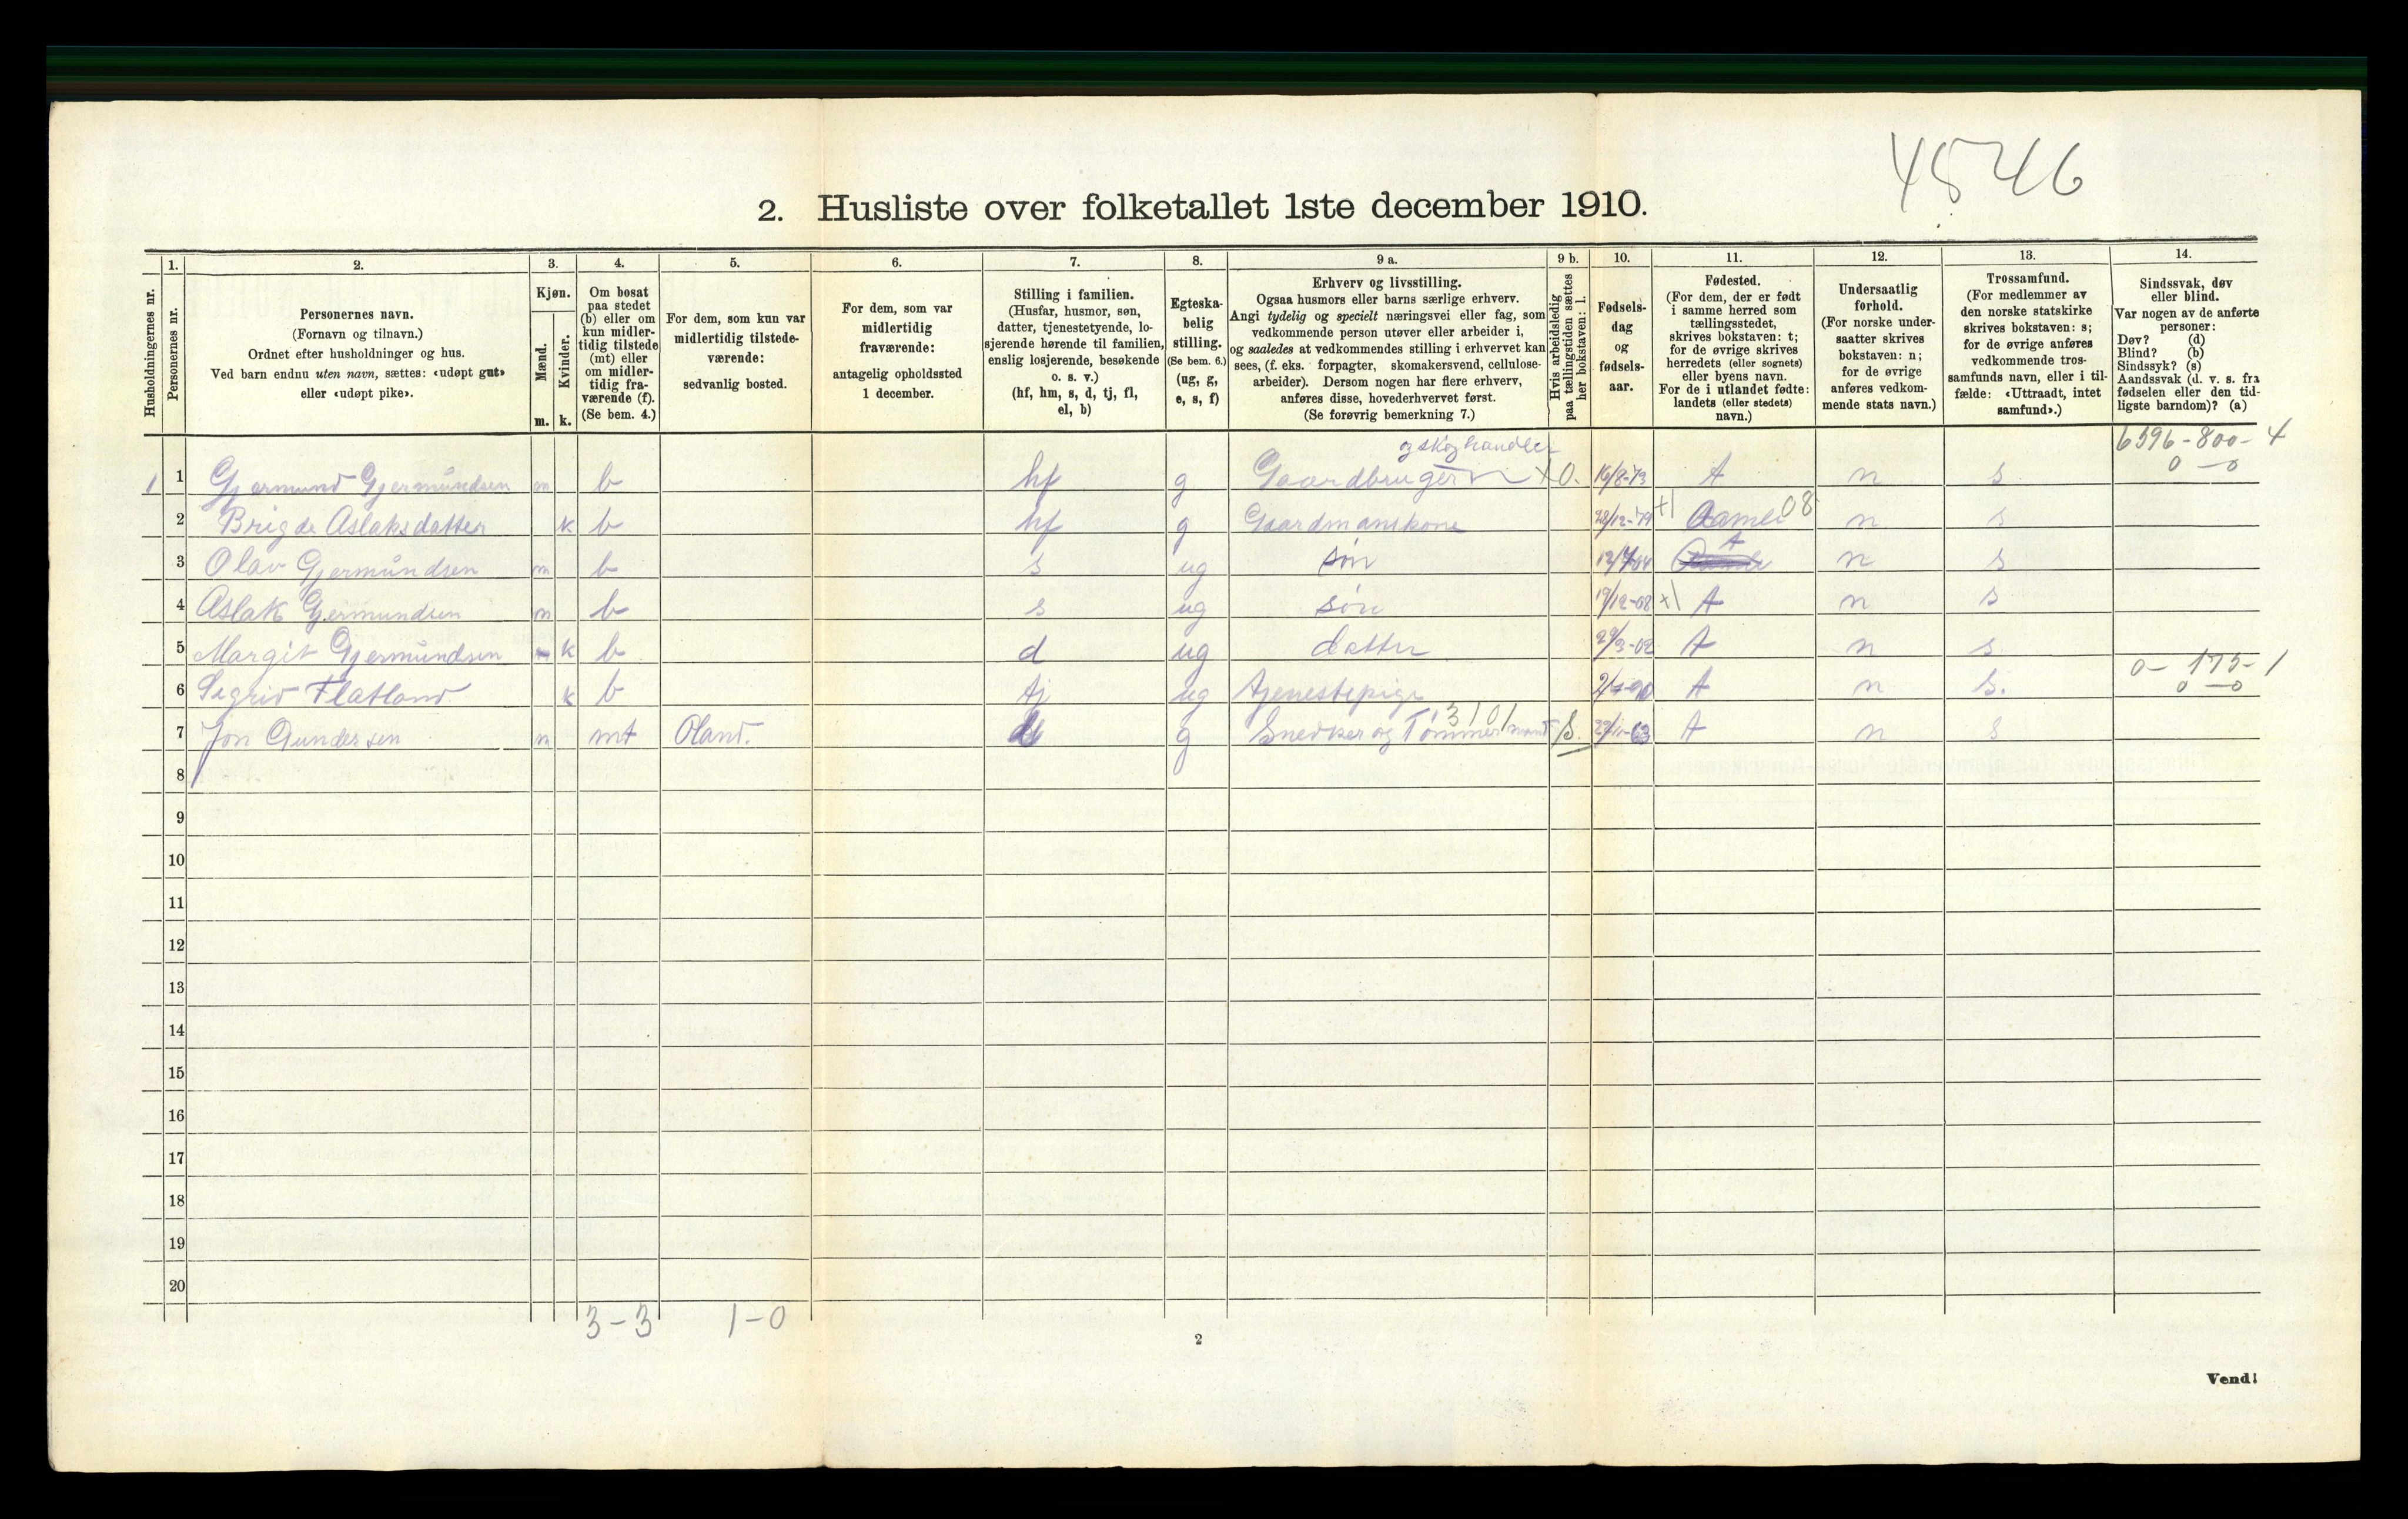 4546
2. Husliste over folketallet 1ste december 1910.
Husholdningernes nr.
1. Personernes nr.
2. Personernes navn.
(Fornavn og tilnavn.)
Ordnet efter husholdninger og hus.
Ved barn endnu uten navn, sættes: «udøpt gut»
eller «udøpt pike».
3. Kjøn.
Mænd. m.
Kvinder. k.
4. Om bosat
paa stedet
(b) eller om
kun midler-
tidig tilstede
(mt) eller
om midler-
tidig fra-
værende (f).
(Se bem. 4.)
5. For dem, som kun var
midlertidig tilstede-
værende:
sedvanlig bosted.
6. For dem, som var
midlertidig
fraværende:
antagelig opholdssted
1 december.
7. Stilling i familien.
(Husfar, husmor, søn,
datter, tjenestetyende, lo-
sjerende hørende til familien,
enslig losjerende, besøkende
o. s. v.)
(hf, hm, s, d, tj, fl,
el, b)
8. Egteska-
belig
stilling.
(Se bem. 6.)
(ug, g,
e, s, f)
9 a. Erhverv og livsstilling.
Ogsaa husmors eller barns særlige erhverv.
Angi tydelig og specielt næringsvei eller fag, som
vedkommende person utøver eller arbeider i,
og saaledes at vedkommendes stilling i erhvervet kan
sees, (f. eks. forpagter, skomakersvend, cellulose-
arbeider). Dersom nogen har flere erhverv,
anføres disse, hovederhvervet først.
(Se forøvrig bemerkning 7.)
9 b. Hvis arbeidsledig
paa tællingstiden sættes
her bokstaven: l.
10. Fødsels-
dag
og
fødsels-
aar.
11. Fødested.
(For dem, der er født
i samme herred som
tællingsstedet,
skrives bokstaven: t;
for de øvrige skrives
herredets (eller sognets)
eller byens navn.
For de i utlandet fødte:
landets (eller stedets)
navn.)
12. Undersaatlig
forhold.
(For norske under-
saatter skrives
bokstaven: n;
for de øvrige
anføres vedkom-
mende stats navn.)
13. Trossamfund.
(For medlemmer av
den norske statskirke
skrives bokstaven: s;
for de øvrige anføres
vedkommende tros-
samfunds navn, eller i til-
fælde: «Uttraadt, intet
samfund».)
14. Sindssvak, døv
eller blind.
Var nogen av de anførte
personer:
Døv? (d)
Blind? (b)
Sindssyk? (s)
Aandssvak (d. v. s. fra
fødselen eller den tid-
ligste barndom)? (a)
og skoghandler 6596-800-4
1 1 Gjermund Gjermundsen m b hf g Gaardbruger + O. 16/8-73 A n s 0-0
2 Brigde Aslaksdatter k b hf g Gaardmanskone 28/12-79 +1 Aamli 08 n s
3 Olav Gjermundsen m b s ug søn A n s
4 Aslak Gjermundsen m b s ug søn 19/12-08 +1 A n s
5 Margit Gjermundsen k b d ug datter A n s
6 Sigrid Flatland k b tj ug tjenestepige A n s. 0-175-1
0-0
7 Jon Gundersen m mt Øland. g Snedker og Tømmermand 3101 S. A n s
8
9
10
11
12
13
14
15
16
17
18
19
20
3-3 1-0
2
Vend!